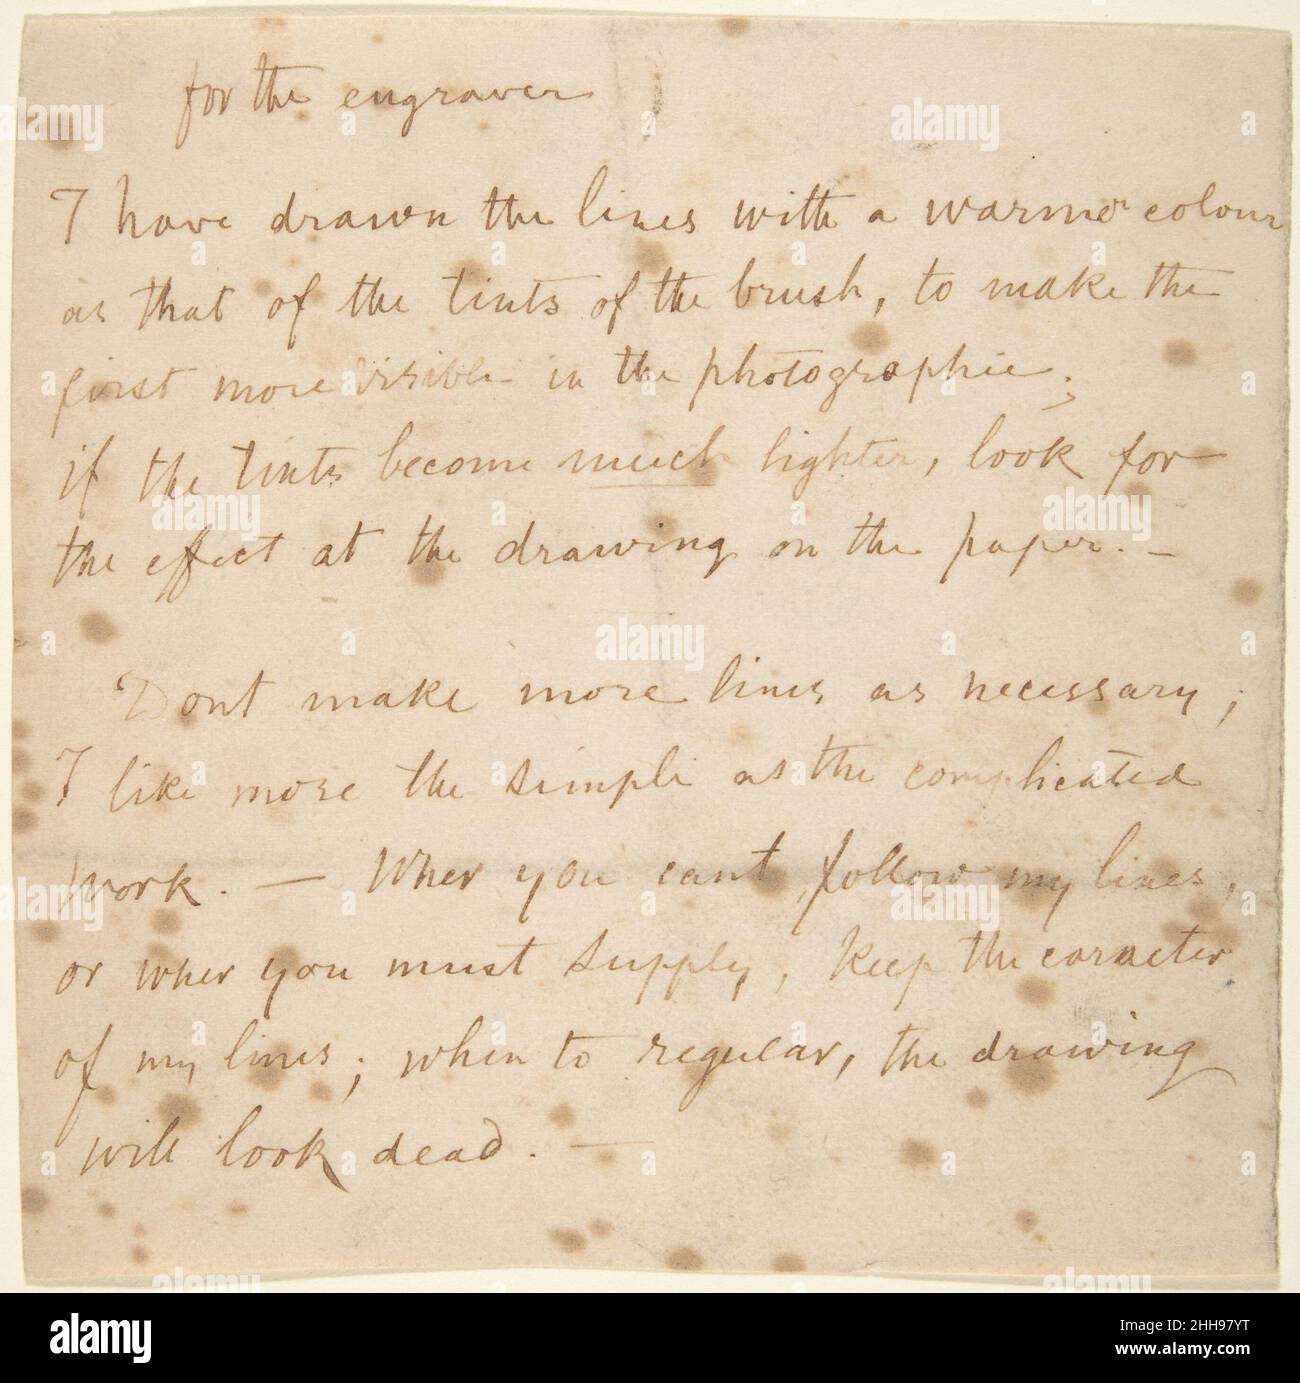 for the engraver
I have drawn the lines with a warmer colour
as that of the tints of the brush, to make the
first more visible in the photographie;
if the tints become much lighter, look for
the effect at the drawing on the paper. —
Dont make more lines as necessary;
I like more the simple as the complicated
work. — Wher you cant follow my lines,
or wher you must supply, keep the caracter
of my lines; when to regular, the drawing
will look dead. —
alamy
Image ID: 2HH97YT
www.alamy.com